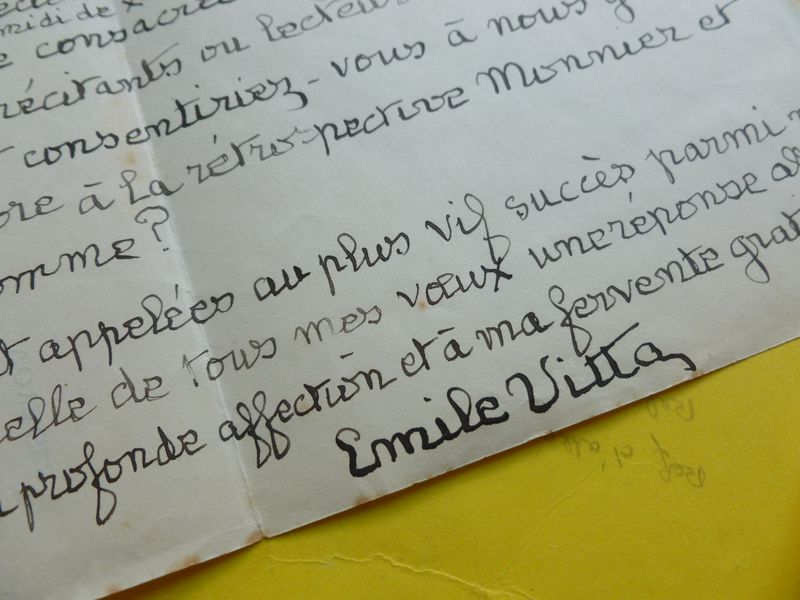 midi de
consacre
récitants ou lecteurs
consentiriez-vous à nous
à la rétrospective Monnier et
omme?
appelées au plus vif succès parmi
elle de tous mes vœux une réponse
profonde affection et à ma fervente grati
Emile Vitta